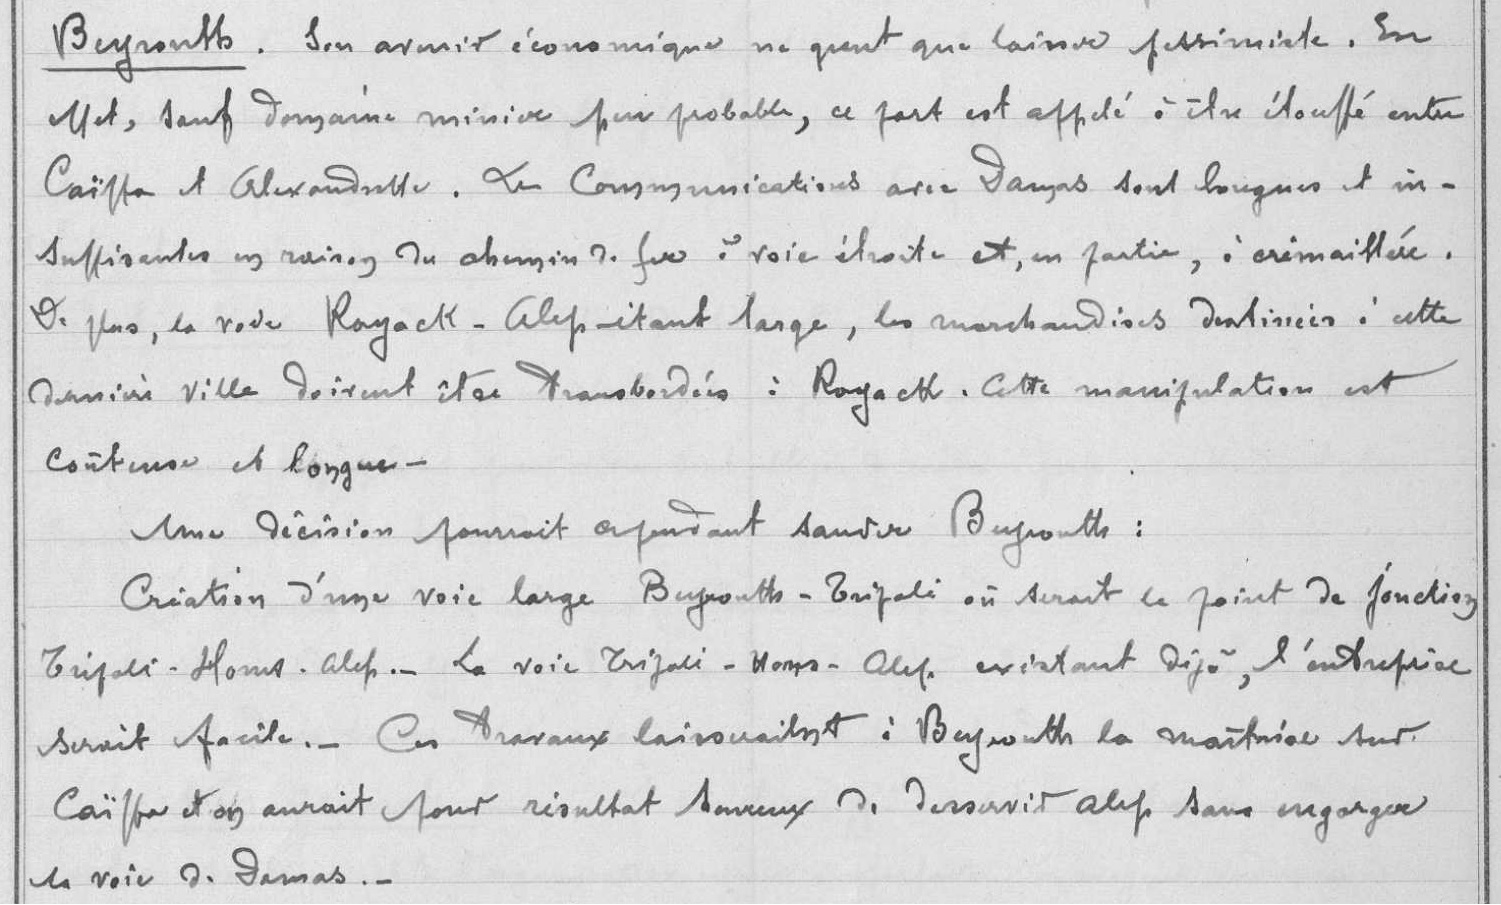 Beyrouth. Son avenir économique ne peut que laisser pessimiste. En
effet, sauf domaine minier peu probable, ce port est appelé à être étouffé entre
Caïffa et Alexandrette. Les Communications avec Damas sont longues et in-
suffisantes en raison du chemin de fer à voie étroite et, en partie, à crémaillère.
De plus, la voie Rayack - Alep - étant large, les marchandises destinées à cette
dernière ville doivent être transbordées à Rayack. Cette manipulation est
coûteuse et longue -
Une décision pourrait cependant sauver Beyrouth :
Création d'une voie large Beyrouth - Tripoli où serait le point de jonction
Tripoli - Homs - Alep. - La voie Tripoli - Homs - Alep existant déjà, l'entreprise
serait facile. - Ces travaux laisseraient à Beyrouth la maîtrise sur
Caïffa et on aurait pour résultat heureux de desservir Alep sans engorger
la voie de Damas. -